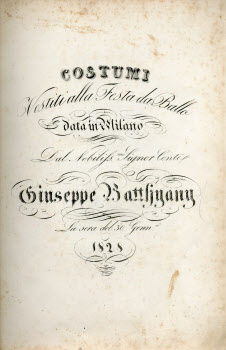 COSTUMI
Vestiti alla Festa da Ballo
data in Milano
Dal Nobiliss. Signor Conte
Giuseppe Batthyany
La sera del 30 Genn.º
1828